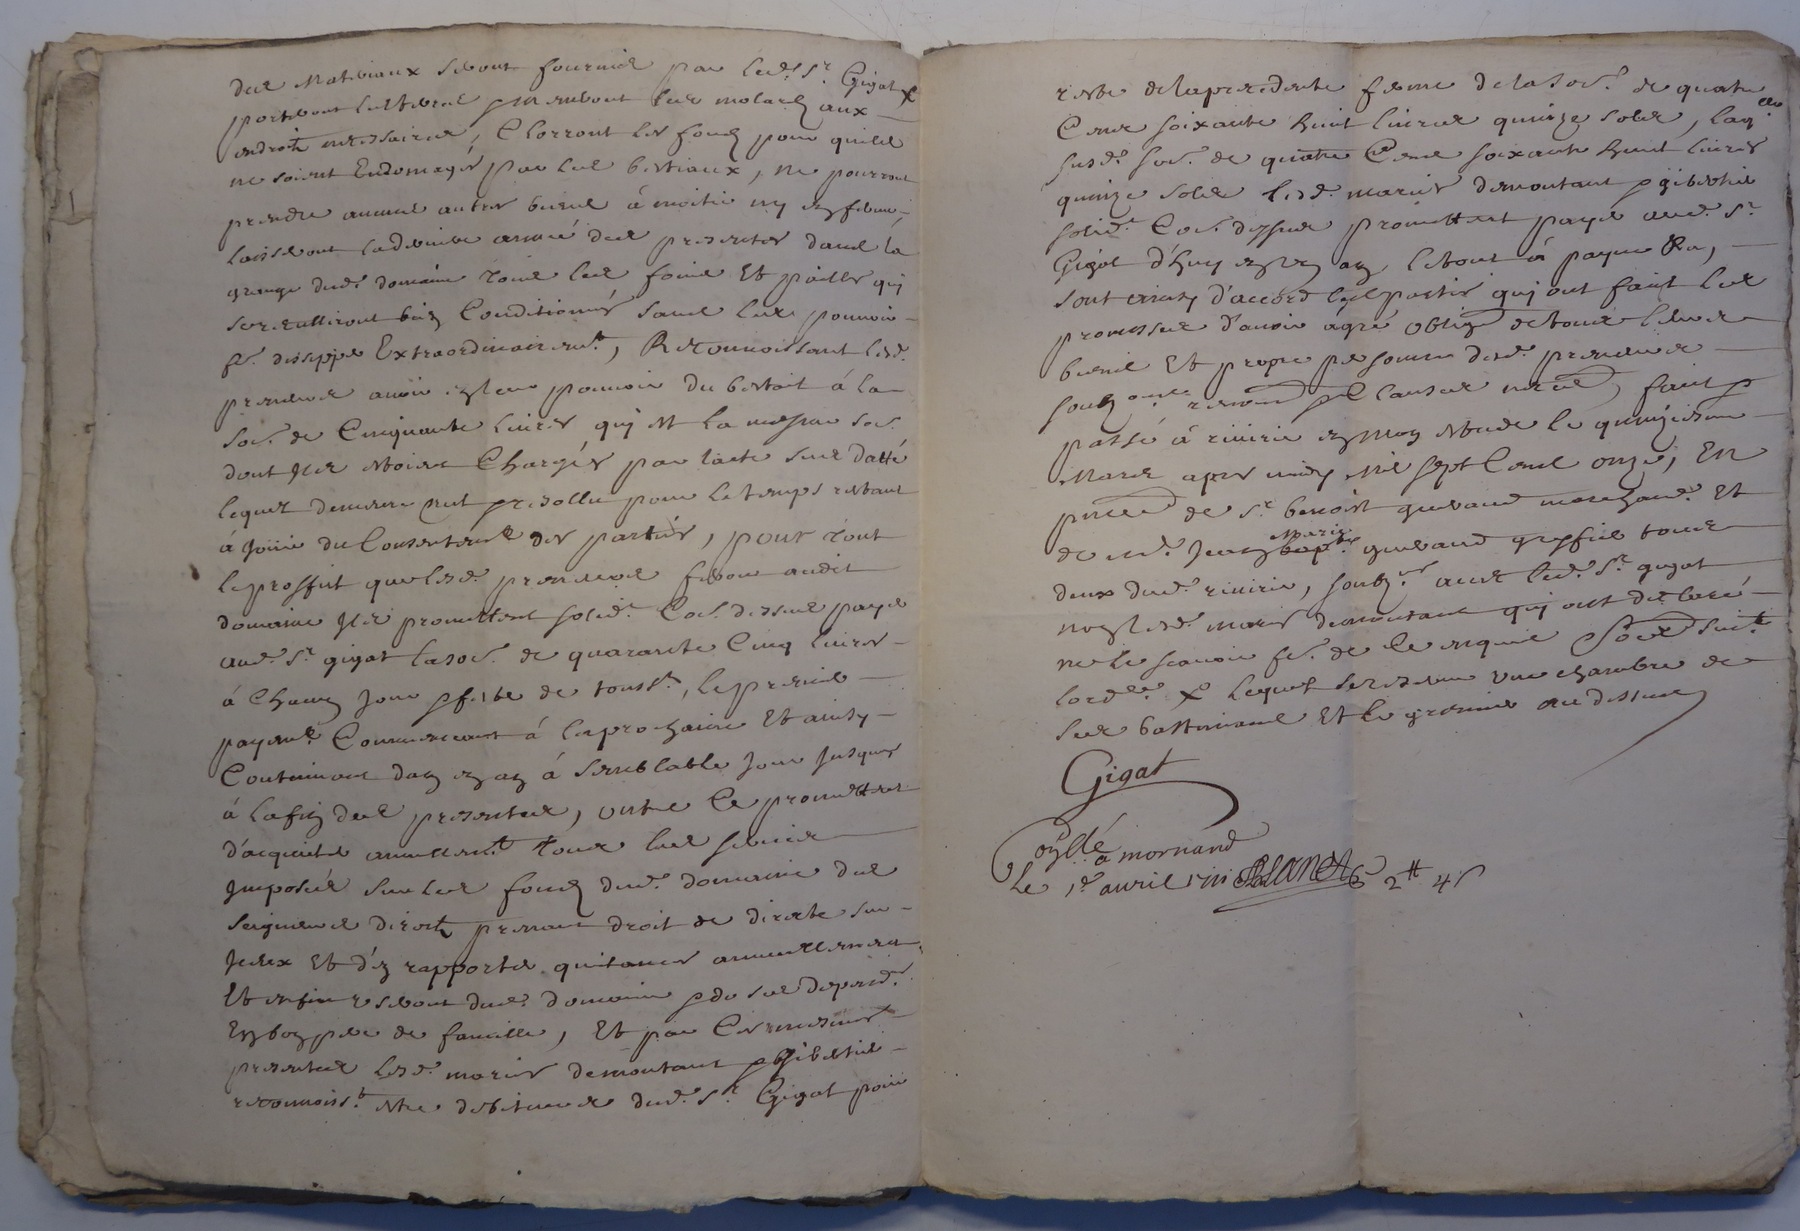 des Materiaux seront fournis par led. Sr. Gigat x
porteront les terres prendront les molard aux
endroits necessaires, Clorront les fondz pour quils
ne soient Endomagés par les bestiaux, ne pourront
prendre aucuns autres biens á moitié ny en ferme,
laisseront la derniere année des presentes dans la
grange dud. domaine tous les foins Et pailles qui
se reculliront bien Conditionnés sans les pouvoir
fe. dissipper Extraordinairemt., Reconnoissant lesd.
preneurs avoir en leur pouvoir du bestait á la
soe. de Cinquante livres qui est la mesme soe.
dont Ils estoient Chargés par lacte sus datté
lequel demeure nul pr resollu pour le temps restant
á Joüir du Consentemt. des parties, pour tout
le proffit que lesd. preneurs feront audit
domaine Ils promettent solidt. Coe. dessus payer
aud. Sr. gigat la soe. de quarante Cinq livres
á Chacun Jour pr feste de toussts., le premier
payemt. Commencant á la prochaine Et ainsy
Continuant dan en an á semblable Jour Jusques
á la fin des presentes, outre Ce promettent
d'acquiter annullemt. tous les servis
Imposés sur les fondz dud. domaine des
seigneurs directz prenant droit de directe sur
Iceux Et d'en rapporter quitances annuellement
Et enfin useront dud. domaine pr de ses depend.
En bon pere de famille, Et par Ces mesmes
presentes lesd. mariés demontant
reconnoisst. estre debiteurs dud. Sr. Gigat pour
reste de la precedente ferme de la soe. de quatre
Cens soixante huit livres quinze sols, laqlle
susd. soe. de quatre Cens soixante huit livres
quinze sols lesd. mariés demontant
solidt. Coe. dessus promettent payer aud. Sr.
Gigat d'huy en un an, leront á payne &a,
sont ainsy d'accord lesd. parties qui ont fait les
promesses d'avoir ágré oblign. de tous leurs
biens Et propre personne desd. preneurs
soubz ons. renon clauses necess. fait p
passé á riverie en mon estude le quinzieme
Mars apres midy Mil sept Cens onze, En
pnce de Sr. benoist guerand marchand Et
de Me. Jean Marie guerand greffier tous
deux dud. riverie, soubz. avec led. Sr. gigat
non lesd. mariés demontant qui ont declaré
ne le scavoir fe. de Ce enquis suit.
lordce. x lequel se reserve une chambre de
ses battimens Et le grenier au dessus
Gigat
Conllé
á mornand
Le 1er avril 1711 Blanc 2 tt 4 s